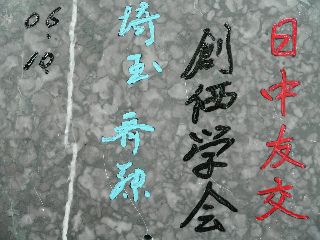 日中友交
創価学会
埼玉
06.10